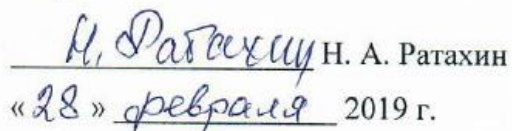 Н. Ратахин Н. А. Ратахин
«28» февраля 2019 г.